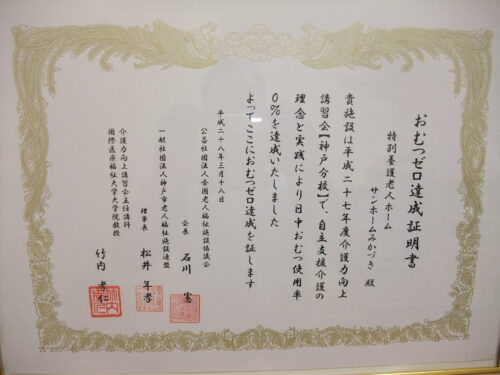 おむつゼロ達成証明書
特別養護老人ホーム
サンホームみかづき 殿
貴施設は平成二十七年度介護力向上
講習会【神戸分校】で、自立支援介護の
理念と実践により日中おむつ使用率
0％を達成いたしました
よってここにおむつゼロ達成を証します
平成二十八年三月十八日
公益社団法人全国老人福祉施設協議会
会長 石川 憲
一般社団法人神戸市老人福祉施設連盟
理事長 松井 年孝
介護力向上講習会主任講師
国際医療福祉大学大学院教授
竹内 孝仁